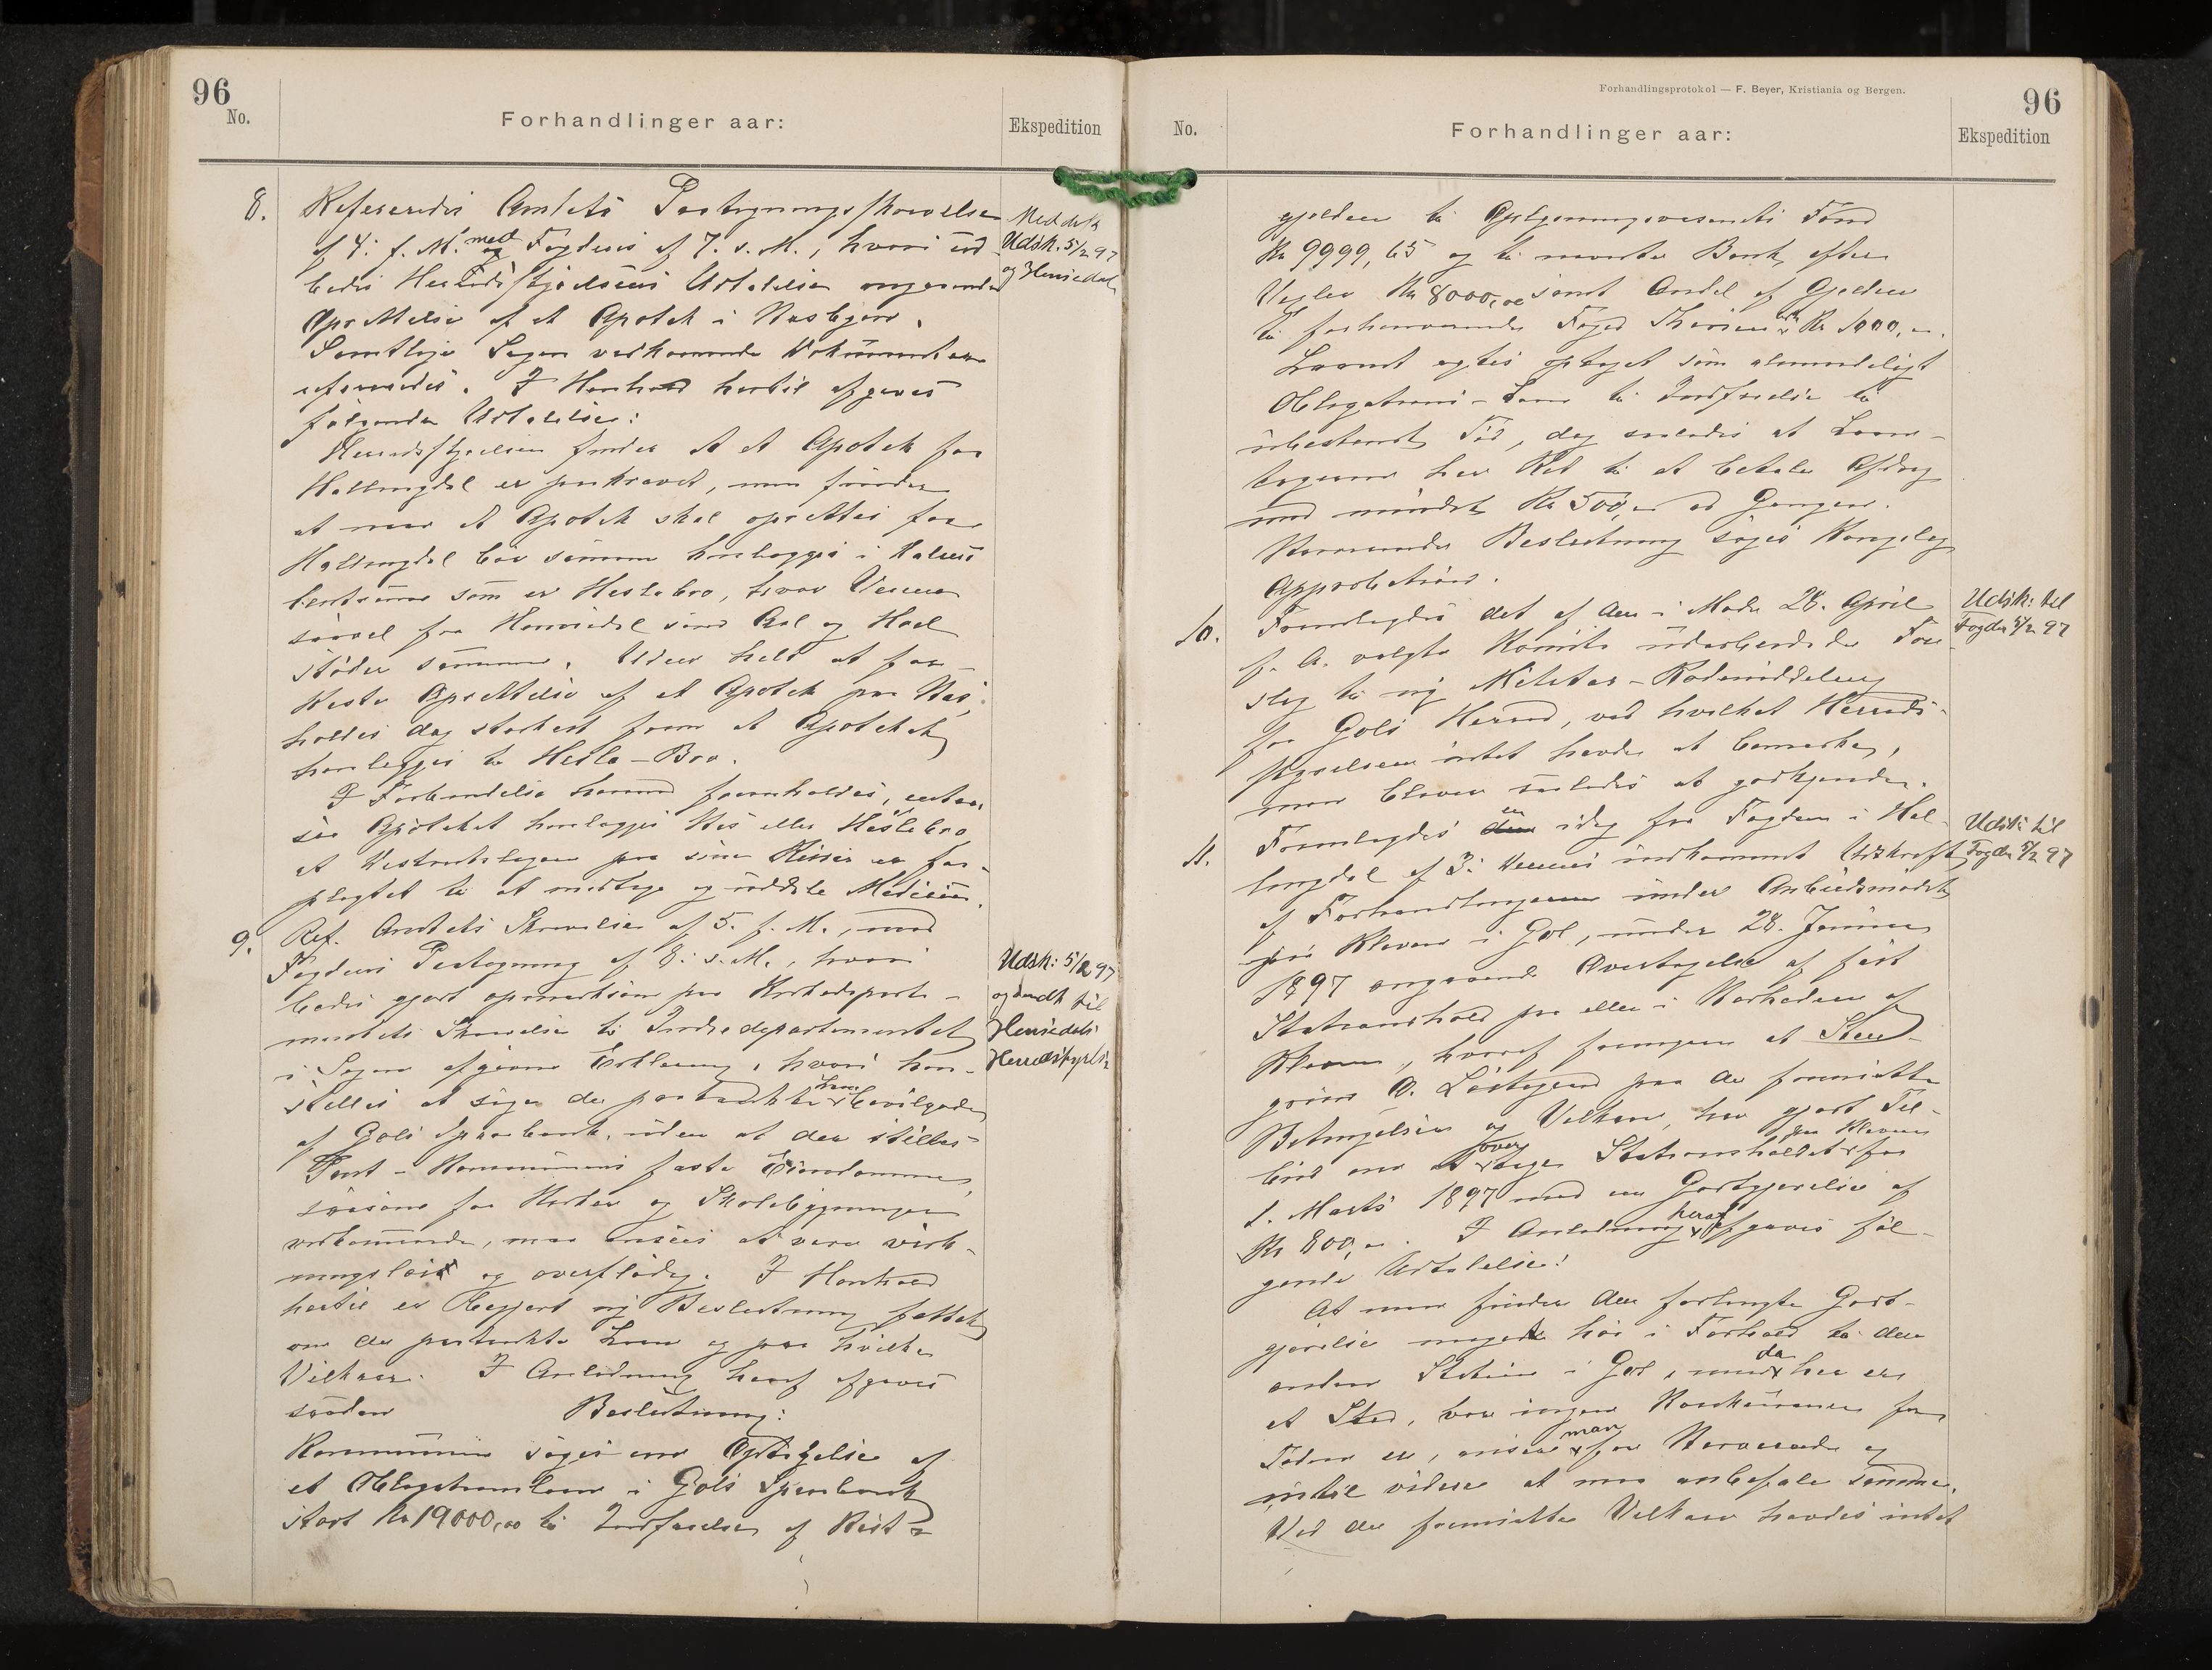 96
No.
Forhandlinger aar:
Ekspedition
8. Refereredes Amtets Paategningsskrivelse
af 4. f. M. med Fogdens af 7. s. M., hvori ud-
bedes Herredsstyrelsens Udtalelse angaaende
Oprettelse af et Apotek i Næsbyen.
Samtlige Sagen vedkommende Dokumenter
refereredes. I Henhold hertil afgaves
følgende Udtalelse:
Herredsstyrelsen finder at et Apotek for
Hallingdal er paakrævet, men finder
at naar et Apotek skal oprettes for
Hallingdal bør samme henlægges i
centrum som er Heslabro, hvor Veiene
saavel fra Hemsedal som Aal og Hol
støder sammen. Uden helt at for-
kaste Oprettelse af et Apotek paa Næs,
holdes dog stærkest frem at Apoteket
henlægges til Hesla-Bro.
I Forbindelse hermed fremholdes, enten
saa Apoteket henlægges Næs eller Heslabro
at Distriktslægen paa sine Reiser er for-
pligtet til at medtage og uddele Medicin.
Meddelt
Udsk. 5/2 97
og Hemsedal
9. Ref. Amtets Skrivelse af 5. f. M., med
Fogdens Paategning af 8. s. M., hvori
bedes gjort opmærksom paa Kirkedeparte-
mentets Skrivelse til Indredepartementet
i Sagen afgivne Erklæring, hvori hen-
stilles at søge de paatænkte Laan bevilgede
af Gols Sparebank, uden at der stilles
Pant - Kommunens faste Eiendomme,
saasom for Kirker og Skolebygninger
vedkommende, maa ansees at være virk-
ningsløst og overflødig. I Henhold
hertil er begjært ny Beslutning fattet
om de paatænkte Laan og paa hvilke
Vilkaar. I Anledning heraf afgaves
saadan Beslutning:
Kommunen søges om Optagelse af
et Obligationslaan i Gols Sparebank
stort Kr 19000,00 til Indfrielse af Rest-
Udsk: 5/2 97
og sendt til
Hemsedals
Herredsstyrelse
Forhandlingsprotokol — F. Beyer, Kristiania og Bergen.
96
No.
Forhandlinger aar:
Ekspedition
gjælden til Oplysningsvæsenets Fond
Kr 9999,65 og til nævnte Bank efter
Vexler Kr 8000,00 samt Andel af Gjelden
til forhenværende Foged Kr 1000,00.
Laanet agtes optaget som almindeligt
Obligations-Laan til Indfrielse til
ubestemt Tid, dog saaledes at Laan-
tageren har Ret til at betale Afdrag
med mindst Kr 500,00 ad Gangen.
Nærværende Beslutning søges Kongelig
Approbation.
10. Fremlagdes det af den i Møde 28. April
f. A. valgte Komite udarbeidede For-
slag til ny Militær-Rodeinddeling
for Gols Herred, ved hvilket Herreds-
styrelsen intet havde at bemærke,
men blever saaledes at godkjende.
Udsk: til
Fogden 5/2 97
11. Fremlagdes en idag fra Fogden i Hal-
lingdal af 3. dennes indkommet Udskrift
af Forhandlingerne under Anbudsmødet
paa Kleven i Gol, under 28. Januar
1897 angaaende Overtagelse af fast
Stationshold paa eller i Nærheden af
Kleven, hvoraf fremgaar at Sten-
grim O. Løstegaard paa de fremsatte
Betingelser og Vilkaar, har gjort Til-
bud om at overtage Stationsholdet paa Kleven fra
1. Marts 1897 med en Godtgjørelse af
Kr 800,00. I Anledning heraf afgaves føl-
gende Udtalelse:
At man finder den forlangte Godt-
gjørelse meget høi i Forhold til den
anden Station i Gol, men da her er
et Sted, hvor ingen Konkurrence fra
Siden er, anser man for Nærværende og
indtil videre at maa anbefale samme.
Ved de fremsatte Vilkaar havdes intet
Udsk: til
Fogden 5/2 97